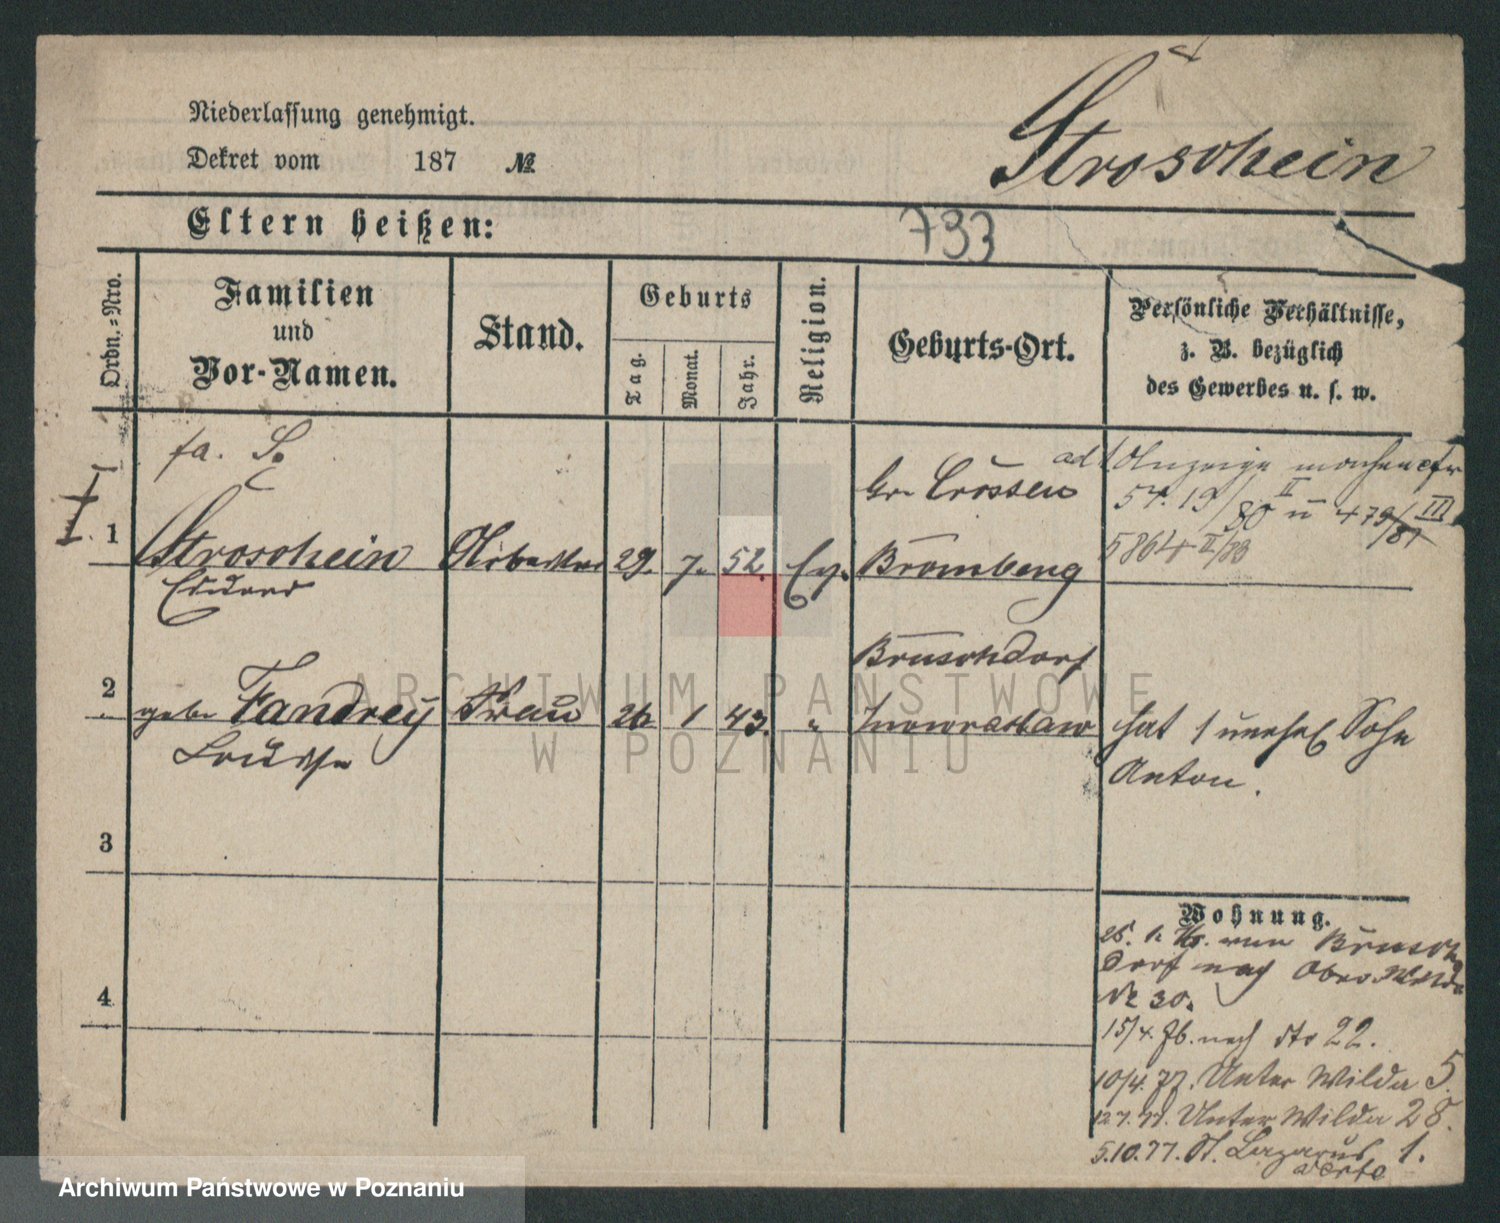 Niederlassung genehmigt.
Dekret vom 187 №
Stroschein
Eltern heißen:
733
Ordn.-Nro.
Familien
und
Vor-Namen.
Stand.
Geburts
Tag.
Monat.
Jahr.
Religion.
Geburts-Ort.
Persönliche Verhältnisse,
z. B. bezüglich
des Gewerbes u. s. w.
fa. S.
1 Stroschein Arbeiter 29. 7. 52. Ev. Gr. Crossen
Bromberg
Eduard
ad 1 Anzeige machen cfr
54. 19/80 II u 479/81 III
5864 II/83
2 gebr Fandrey Frau 26 1 43. " Bruschdorf
Inowraclaw
Louise
hat 1 unehel Sohn
Anton.
3
4
Wohnung.
26. 1. 76. von Brusch
dorf nach Ober Wilda
№ 30.
15/4. 76. nach dto 22.
10/4. 77. Unter Wilda 5.
12.7.77. Unter Wilda 28.
5.10.77. St. Lazarus 1.
verte
ARCHIWUM PAŃSTWOWE
W POZNANIU
Archiwum Państwowe w Poznaniu